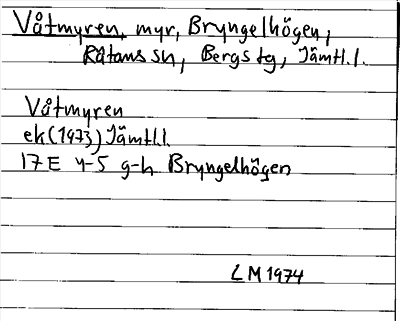 Våtmyren, myr, Bryngelhögen,
Råtans sn, Bergs tg, Jämtl.l.
Våtmyren
ek(1973) Jämtl.l.
17E 4-5 g-h Bryngelhögen
LM 1974